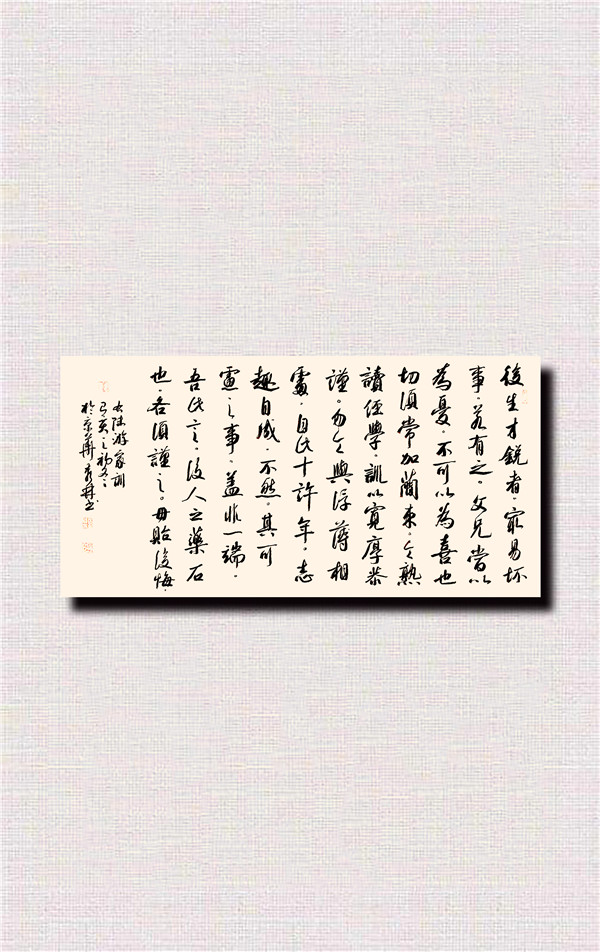 後生才銳者，最易坏
事，若有之，父兄當以
為憂，不可以為喜也
切須常加簡束，令熟
讀經學，訓以寬厚恭
謹。勿令與浮薄相
處，自此十許年，志
趣自成，不然，其可
慮之事，盖非一端，
吾此言，後人之藥石
也，各須謹之。毋貽後悔，
陸游家訓
於京華